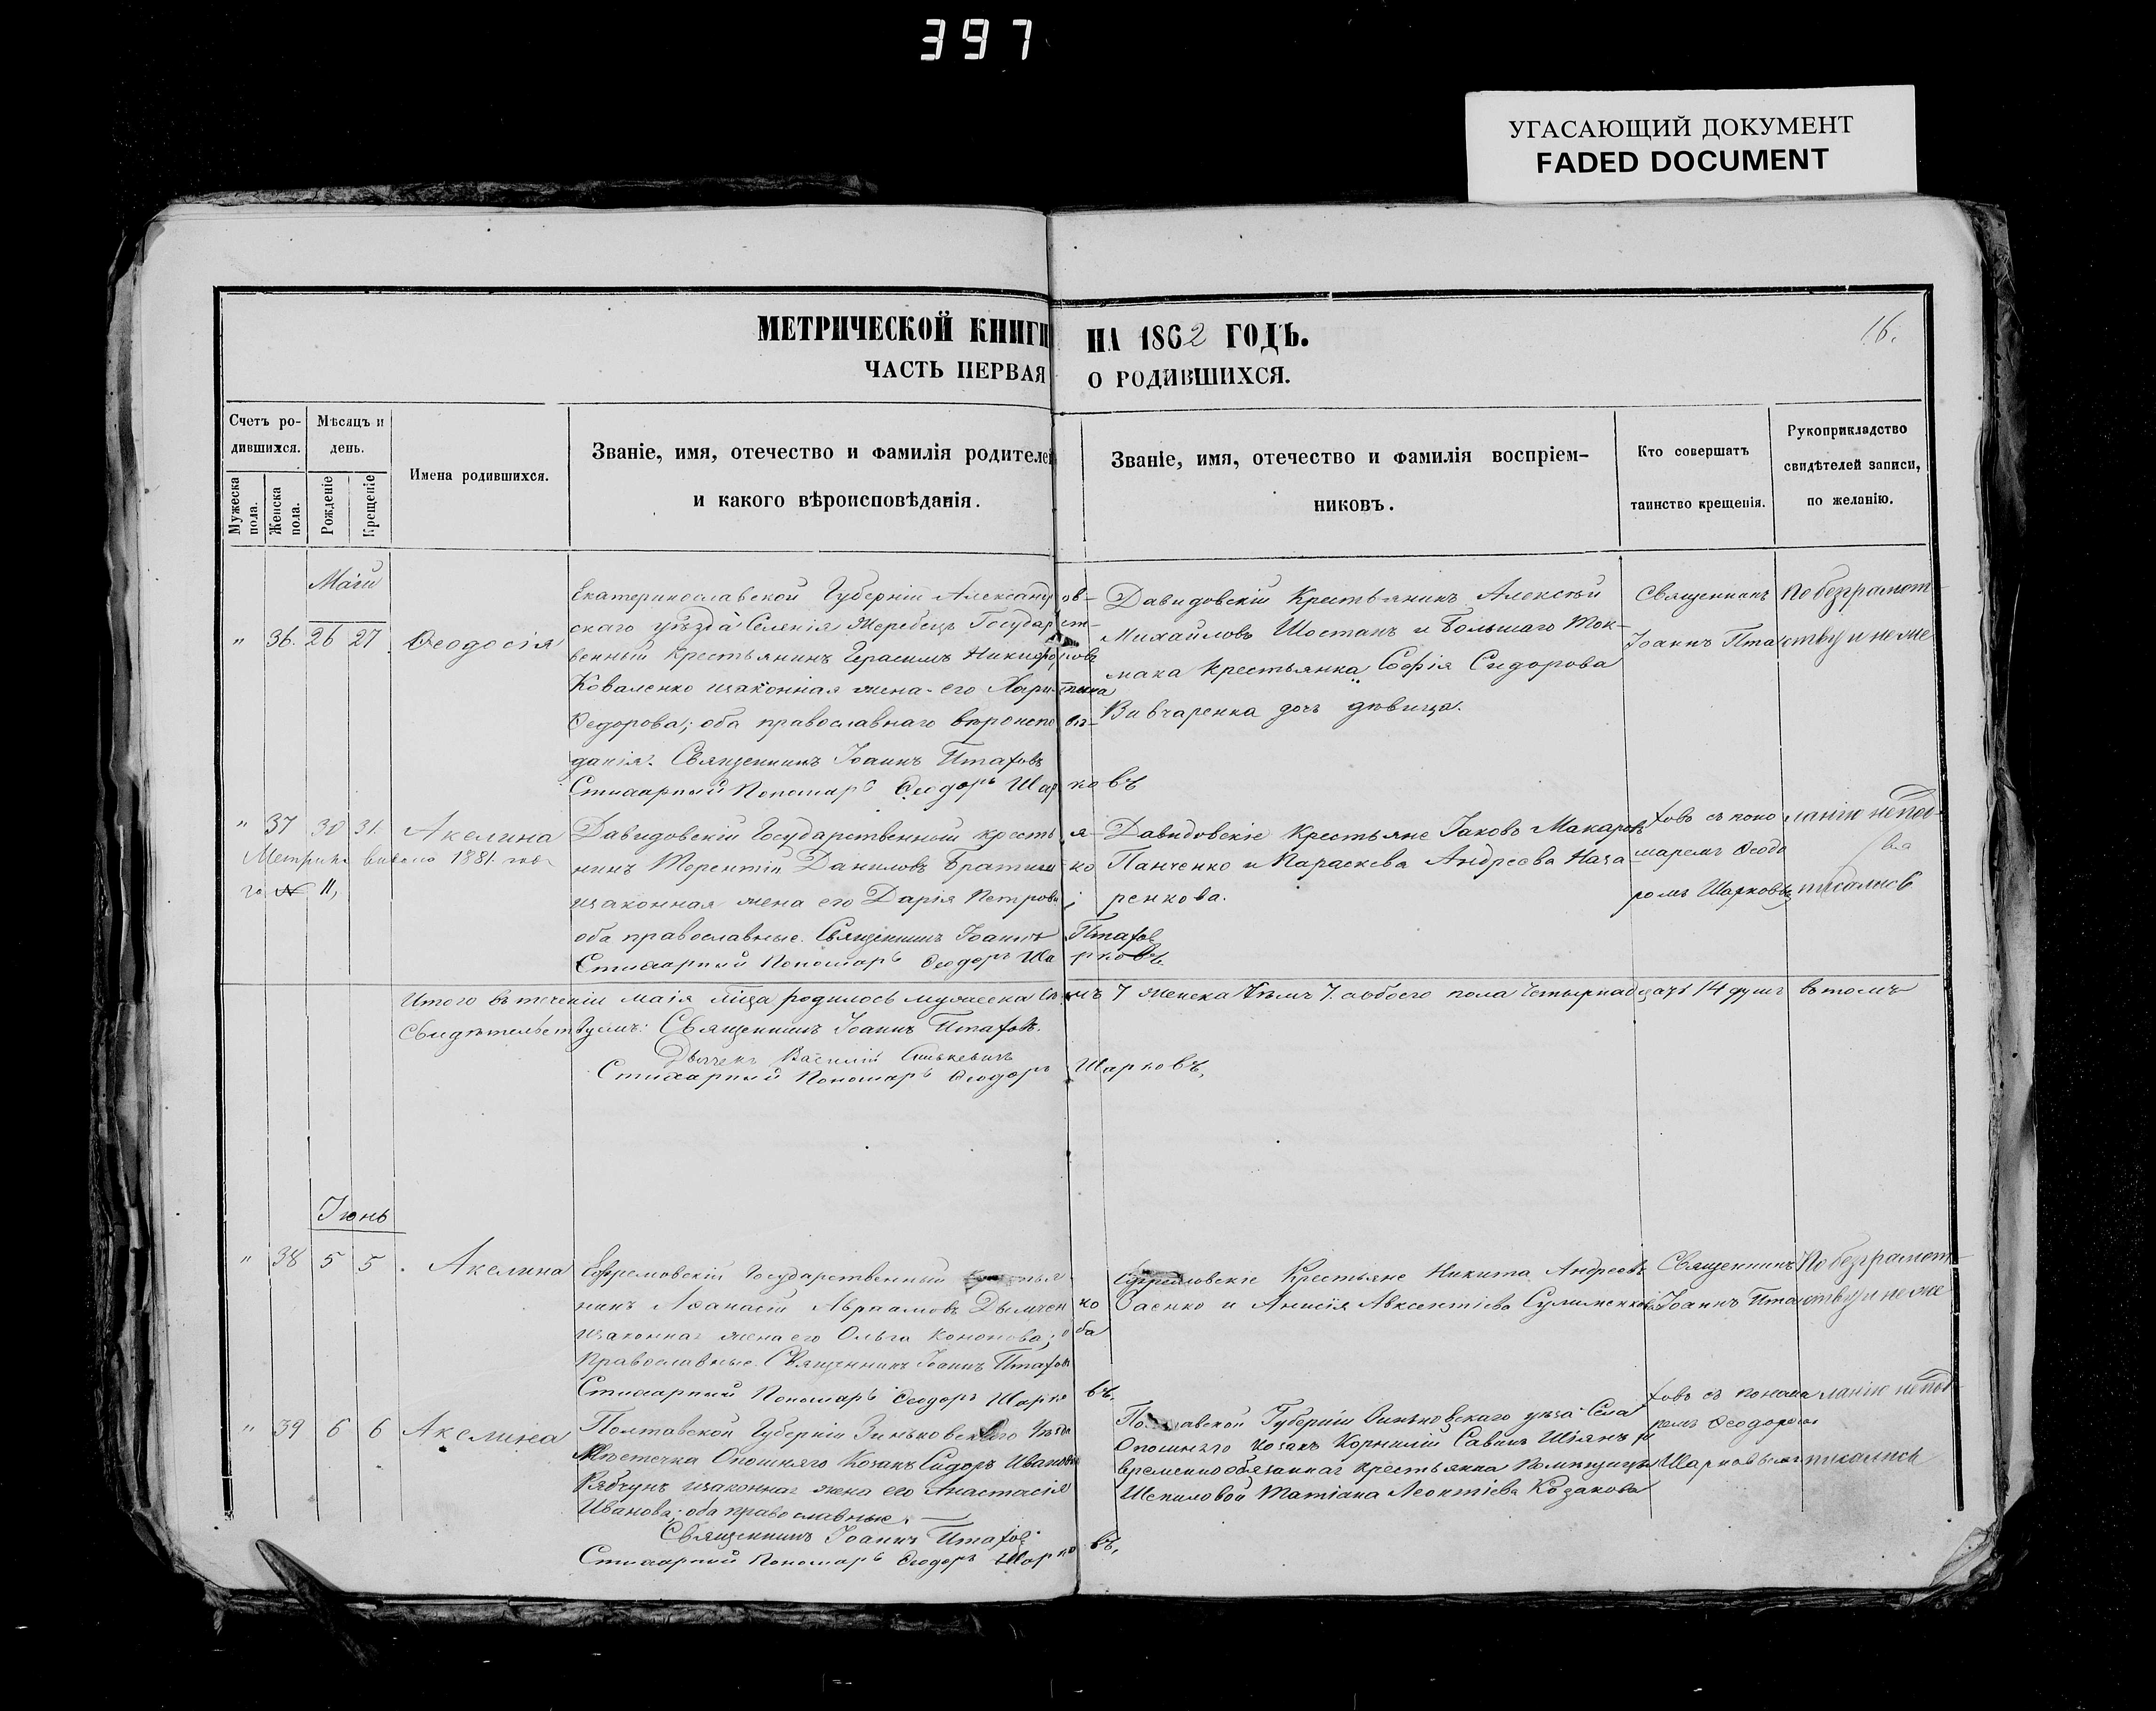 397
УГАСАЮЩИЙ ДОКУМЕНТ
FADED DOCUMENT
МЕТРИЧЕСКОЙ КНИГИ НА 1862 ГОДЪ.
16.
ЧАСТЬ ПЕРВАЯ О РОДИВШИХСЯ.
Счетъ ро-
дившихся.
Мужеска пола.
Женска пола.
Мѣсяцъ и
день.
Рожденіе
Крещеніе
Имена родившихся.
Званіе, имя, отечество и фамилія родителей
и какого вѣроисповѣданія.
Званіе, имя, отечество и фамилія воспріем-
никовъ.
Кто совершатъ
таинство крещенія.
Рукоприкладство
свидѣтелей записи,
по желанію.
Маія
" 36. 26 27 Ѳеодосія
Екатеринославской Губерніи Александров-
скаго уѣзда Селенія Жеребецъ Государст-
венный Крестьянинъ Герасимъ Никифоровъ
Коваленко и законная жена его Харитина
Ѳедорова; оба православнаго вѣроисповѣ-
данія. Священникъ Іоаннъ Птаховъ
Стихарный Пономарь Ѳеодоръ Шарковъ
Давидовскій Крестьянинъ Алексѣй
Михайловъ Шостакъ и Большаго Ток-
мака Крестьянка Софія Сидорова
Вивчаренка дочь дѣвица.
Священникъ
Іоаннъ Пта
По безграмот-
ству и не же
" 37 30 31. Акелина
Метрика 1881 го
№ 11,
Давидовскій Государственный крестья-
нинъ Терентій Даниловъ Братишко
и законная жена его Дарія Петрова;
оба православные. Священникъ Іоаннъ Птахов
Стихарный Пономарь Ѳеодоръ Шарковъ
Давидовскіе Крестьяне Іаковъ Макаровъ
Панченко и Параскева Андреева Наза
ренкова.
ховъ съ поно
маремъ Ѳеодо
ромъ Шарковымъ
ланію не под-
писались
Итого въ теченіи маія мѣца родилось мужеска 7 женска 7. обоего пола четырнадцать 14 душъ въ томъ
Свидѣтельствуемъ: Священникъ Іоаннъ Птаховъ.
Дьячекъ Василій
Стихарный Пономарь Ѳеодоръ Шарковъ,
Іюнь
" 38 5 5. Акелина
Ефремовскій Государственный крестья
нинъ Аѳанасій Авраамовъ Дымченко
и законная жена его Ольга Кононова; оба
Православные. Священникъ Іоаннъ Птаховъ
Стихарный Пономарь Ѳеодоръ Шарковъ.
Ефремовскіе Крестьяне Никита Андреевъ
Заенко и Анисія Авксентіева Сулименкова
Священникъ
Іоаннъ Пта
По безграмот-
ству и не же
" 39 6 6 Акелина
Полтавской Губерніи Зиньковского Уѣзда
Мѣстечка Опошняго Козакъ Сидоръ Ивановъ
Рябчунъ и законная жена его Анастасія
Иванова; оба православные.
Священникъ Іоаннъ Птахов
Стихарный Пономарь Ѳеодоръ Шарковъ,
Полтавской Губерніи Зиньковскаго уѣзда Села
Опошняго Козакъ Корнилій Савинъ и
временнообязанная крестьянка Помѣщицы
Шепиловой Татіана Леонтіева Козакова
ховъ съ понома
ремъ Ѳеодоромъ
Шарковымъ
ланію не под-
писались